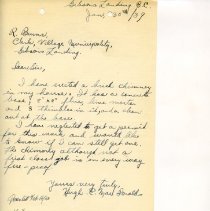 Gibsons Landing B.C.
Jan. 30th /39
R. Burns,
Clerk, Village Municipality,
Gibsons Landing
Dear Sir:
I have erected a brick chimney
in my house. It has a concrete
base, flue, lime mortar
and 3 thimbles in
and at the base.
I have neglected to get a permit
for this work and would like
to know if I can still get one.
The chimney although not a
first class job is in every way
fire-proof.
Yours very truly,
Hugh
Granted Feb